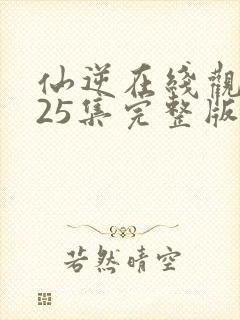 仙逆在线觀
25集完整版
若然晴空